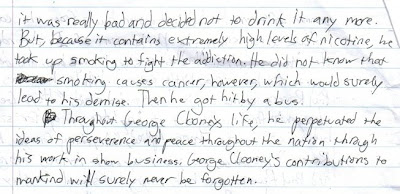 it was really bad and decided not to drink it any more.
But, because it contains extremely high levels of nicotine, he
took up smoking to fight the addiction. He did not know that
smoking causes cancer, however, which would surely
lead to his demise. Then he got hit by a bus.
Throughout George Clooney's life, he perpetuated the
ideas of perseverence and peace throughout the nation through
his work in show business. George Clooney's contributions to
mankind will surely never be forgotten.